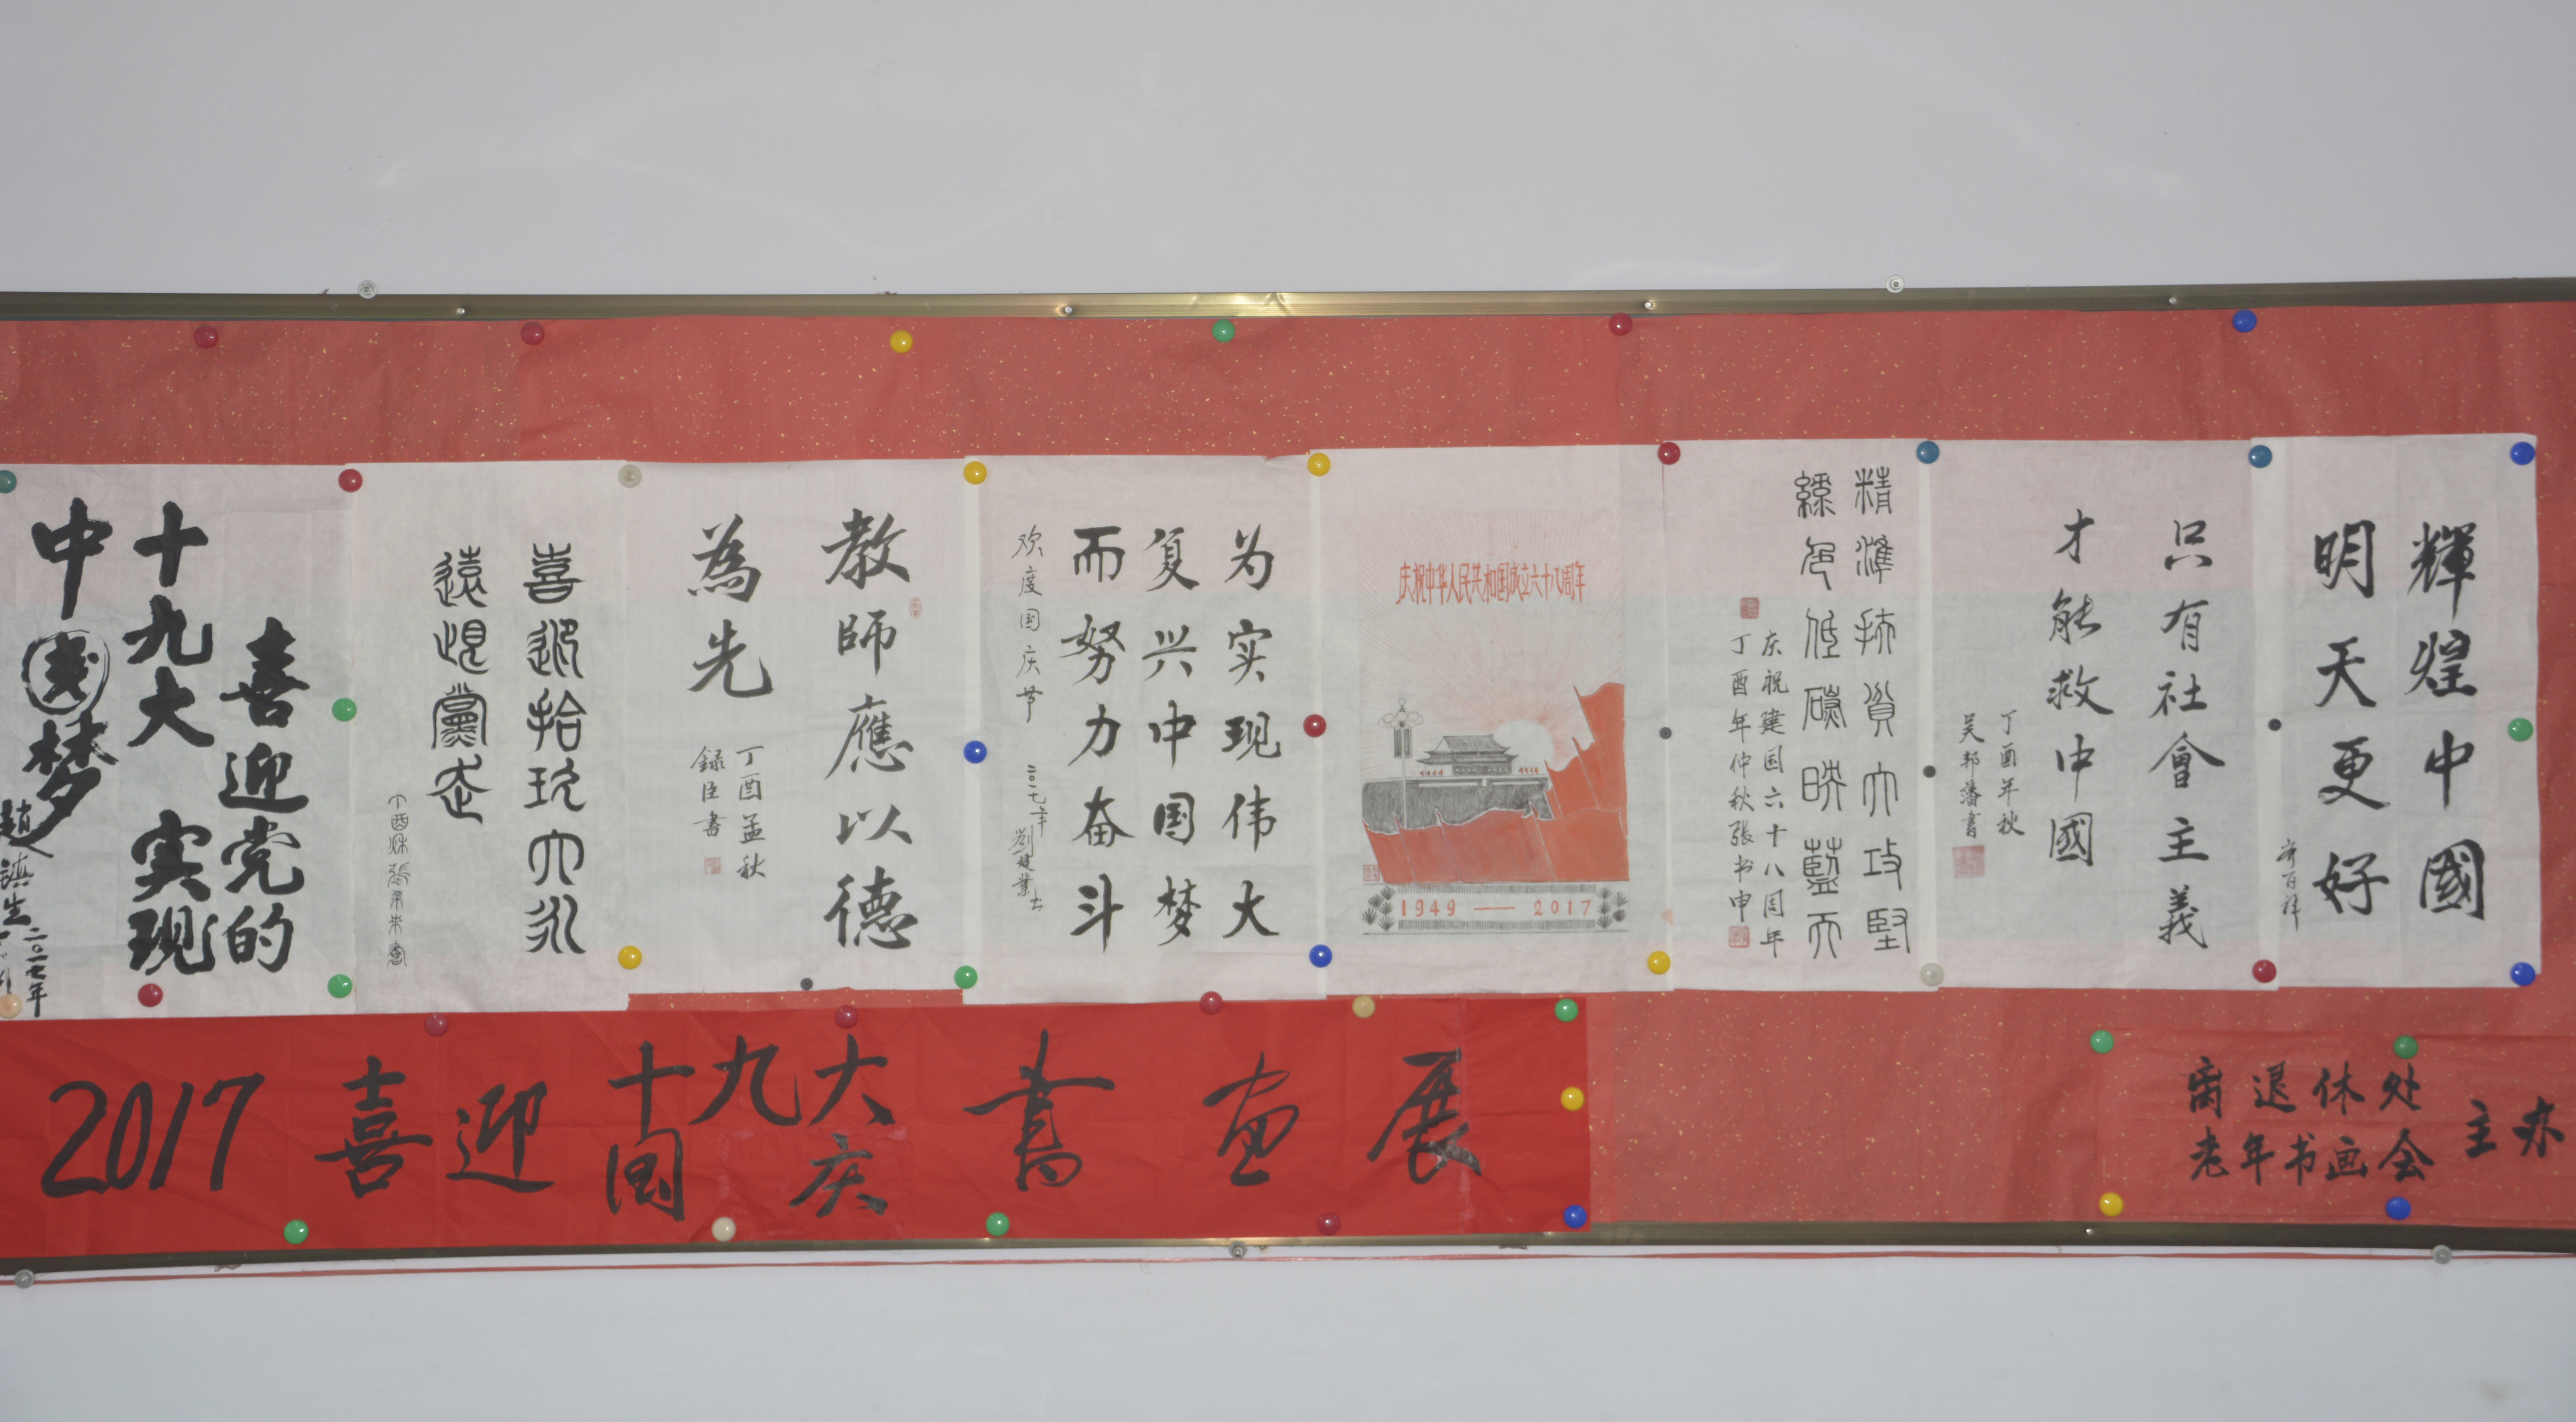 輝煌中國
明天更好
只有社會主義
才能救中國
丁酉年秋
吴邦藩書
精準扶貧大攻堅
綠色低碳映藍天
庆祝建国六十八周年
丁酉年仲秋張书申
庆祝中华人民共和国成立六十八周年
1949 — 2017
为实现伟大
复兴中国梦
而努力奋斗
欢度国庆节
二〇一七年
劉建業书
教師應以德
為先
丁酉孟秋
録臣書
喜迎拾玖大永
遠跟黨走
喜迎党的
十九大 实现
中国梦
趙滇生
二〇一七年
2017 喜迎 十九大 國庆 書画展
离退休处
老年书画会
主办